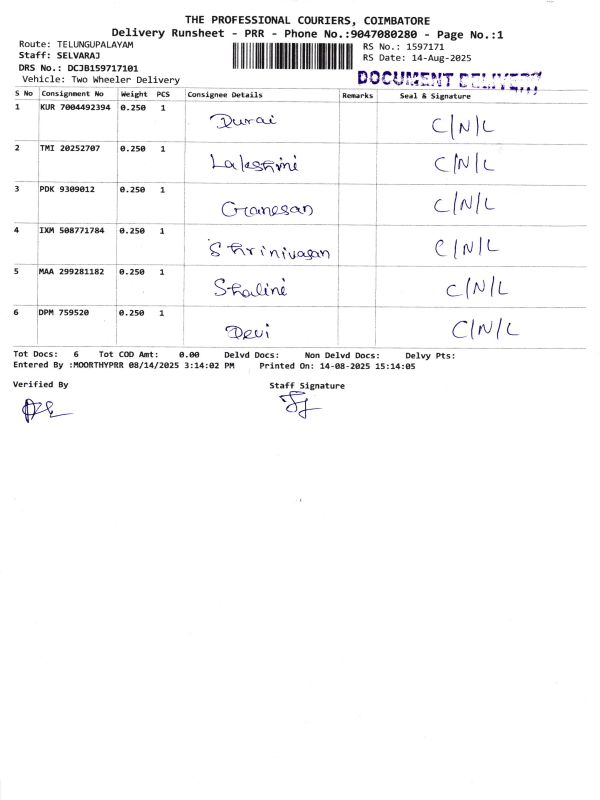 THE PROFESSIONAL COURIERS, COIMBATORE
Delivery Runsheet - PRR - Phone No.:9047080280 - Page No.:1
Route: TELUNGUPALAYAM
Staff: SELVARAJ
DRS No.: DCJB159717101
Vehicle: Two Wheeler Delivery
RS No.: 1597171
RS Date: 14-Aug-2025
DOCUMENT DELIVERY
S No Consignment No Weight PCS Consignee Details Remarks Seal & Signature
1 KUR 7004492394 0.250 1 Durai C/N/L
2 TMI 20252707 0.250 1 Lakshmi C/N/L
3 PDK 9309012 0.250 1 Ganesan C/N/L
4 IXM 508771784 0.250 1 Shrinivasan C/N/L
5 MAA 299281182 0.250 1 Shalini C/N/L
6 DPM 759520 0.250 1 Devi C/N/L
Tot Docs: 6 Tot COD Amt: 0.00 Delvd Docs: Non Delvd Docs: Delvy Pts:
Entered By :MOORTHYPRR 08/14/2025 3:14:02 PM Printed On: 14-08-2025 15:14:05
Verified By Staff Signature